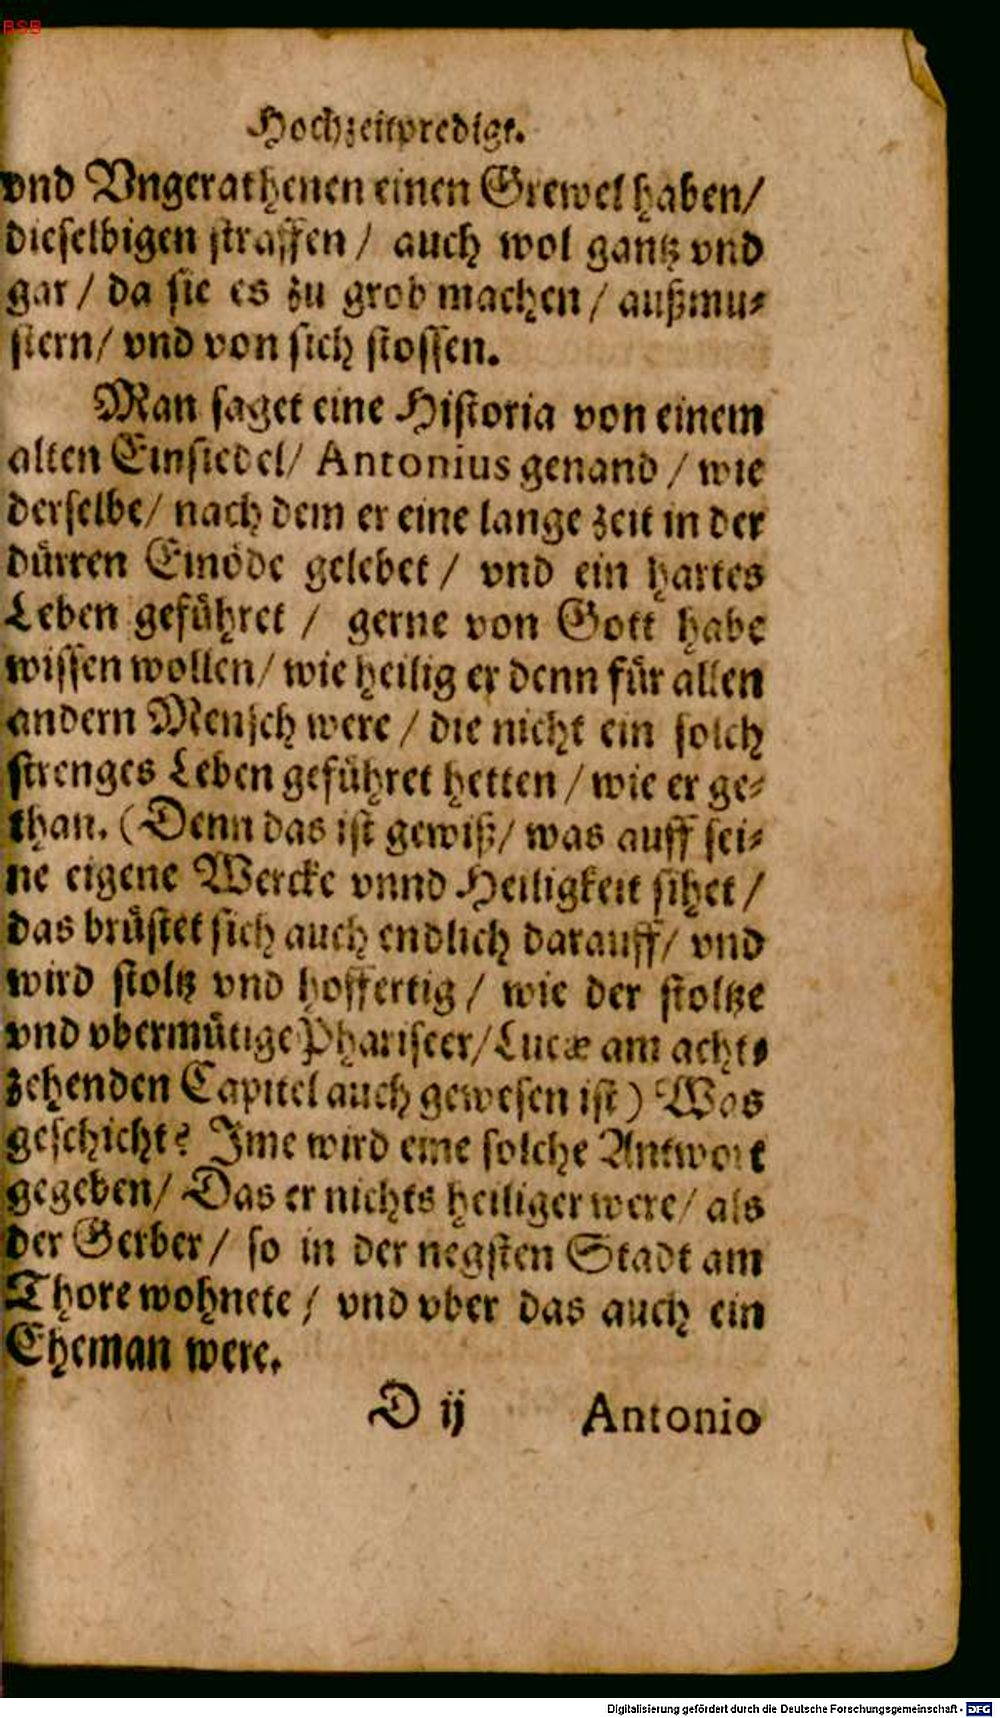 BSB
Hochzeitpredigt.
vnd Vngerathenen einen Grewel haben/
dieselbigen straffen / auch wol gantz vnd
gar / da sie es zu grob machen / außmu⸗
stern/ vnd von sich stossen.
Man saget eine Historia von einem
alten Einsiedel/ Antonius genand / wie
derselbe/ nach dem er eine lange zeit in der
dürren Einöde gelebet / vnd ein hartes
Leben geführet / gerne von Gott habe
wissen wollen/ wie heilig er denn für allen
andern Mensch were / die nicht ein solch
strenges Leben geführet hetten / wie er ge⸗
than. (Denn das ist gewiß/ was auff sei⸗
ne eigene Wercke vnnd Heiligkeit sihet /
das brüstet sich auch endlich darauff/ vnd
wird stoltz vnd hoffertig / wie der stoltze
vnd vbermütige Phariseer/ Lucæ am acht⸗
zehenden Capitel auch gewesen ist) Was
geschicht? Ime wird eine solche Antwort
gegeben/ Das er nichts heiliger were/ als
der Gerber/ so in der negsten Stadt am
Thore wohnete / vnd vber das auch ein
Eheman were.
D ij Antonio
Digitalisierung gefördert durch die Deutsche Forschungsgemeinschaft - DFG